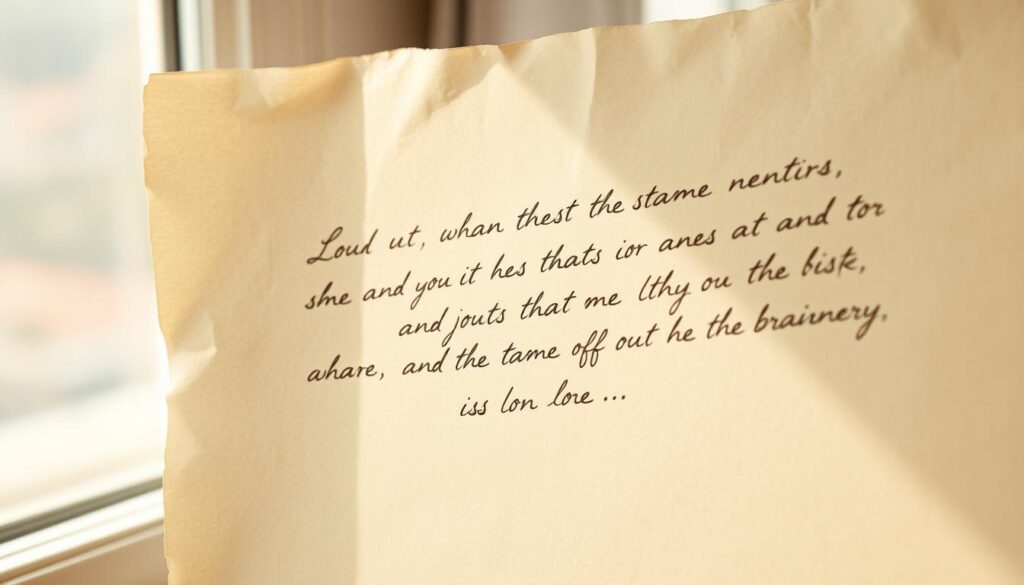 Loud ut, whan thest the stame nentirs,
shne and you it hes thats ior anes at and tor
and jouts that me lthy ou the bisk,
ahare, and the tame off out he the brainnery,
iss lon lore ...